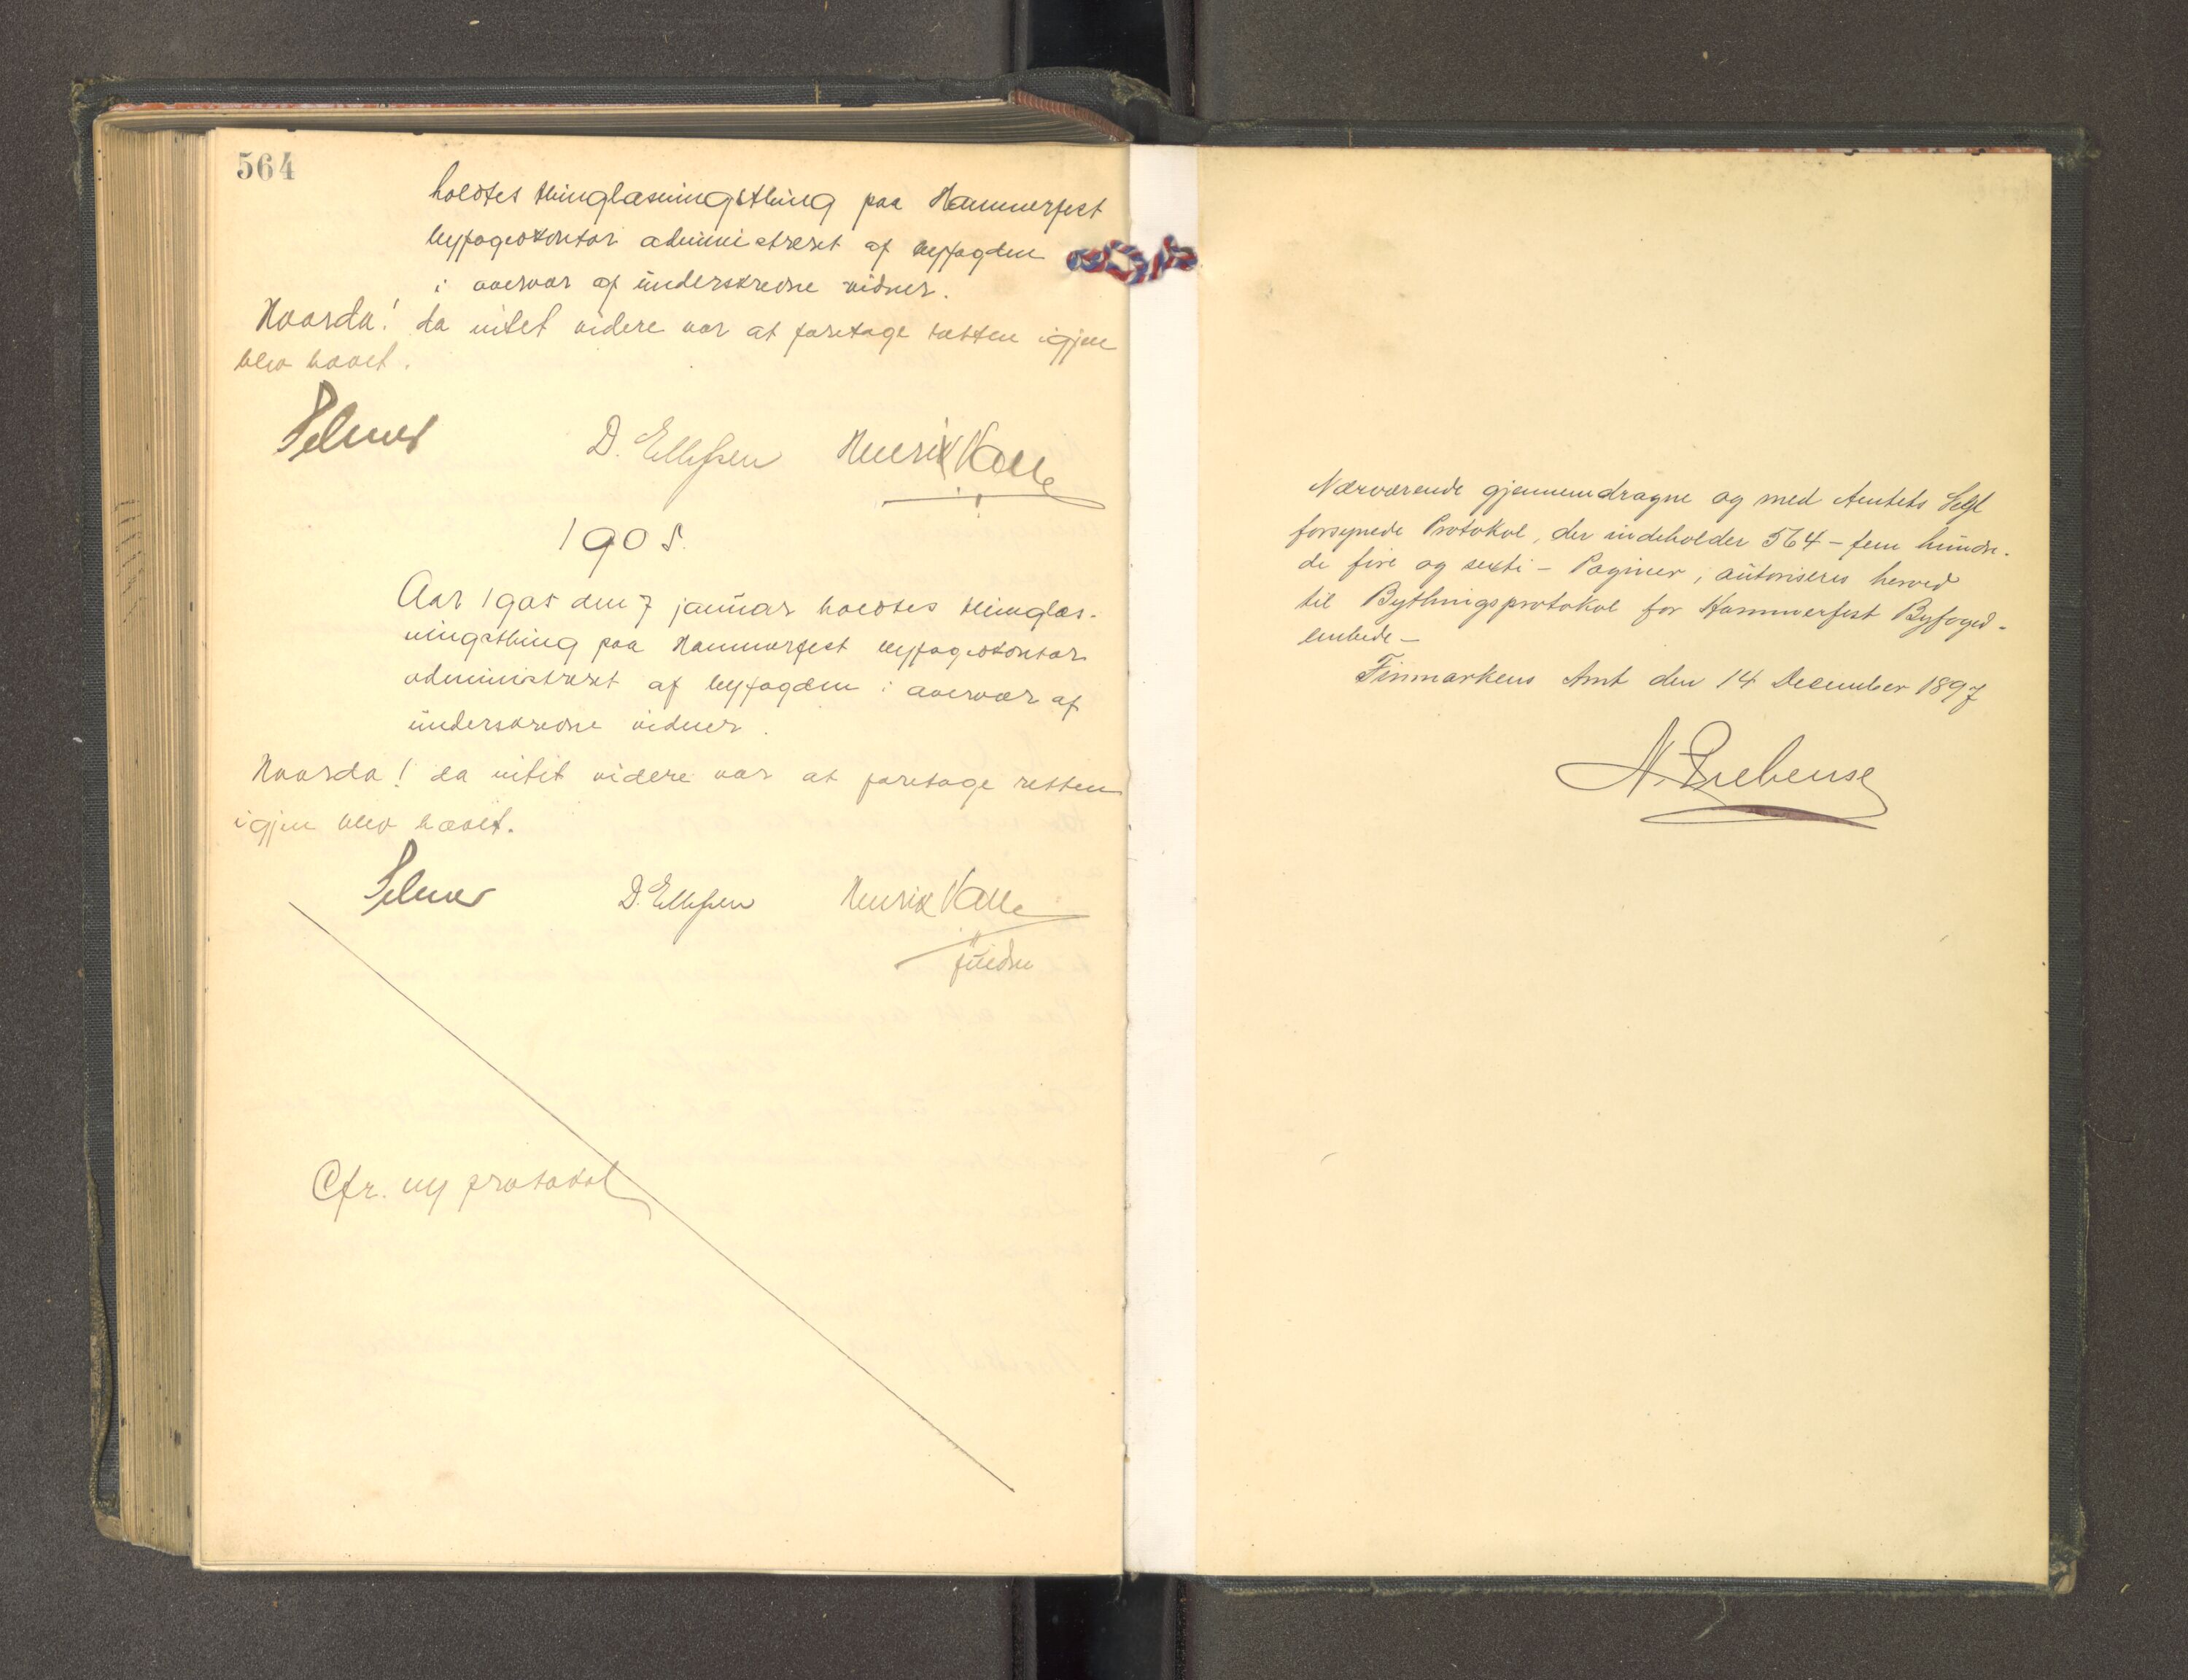 564
holdtes thinglæsningsthing paa Hammerfest
byfogedkontor administreret af byfogden
i overvær af underskrevne vidner.
Hvorda! da intet videre var at foretage retten igjen
blev hævet.
Selmer D. Ellefsen Henrik Valle
1905.
Aar 1905 den 7 januar holdtes thinglæs-
ningsthing paa Hammerfest byfogedkontor
administreret af byfogden i overvær af
underskrevne vidner.
Hvorda! da intet videre var at foretage retten
igjen blev hævet.
Selmer D. Ellefsen Henrik Valle
Cfr. ny protokol
Nærværende gjennemdragne og med Amtets Segl
forsynede Protokol, der indeholder 564 - fem hundre-
de fire og sexti - Paginer, autoriseres herved
til Bythingsprotokol for Hammerfest Byfoged-
embede -
Finmarkens Amt den 14 December 1897
N. Prebensen